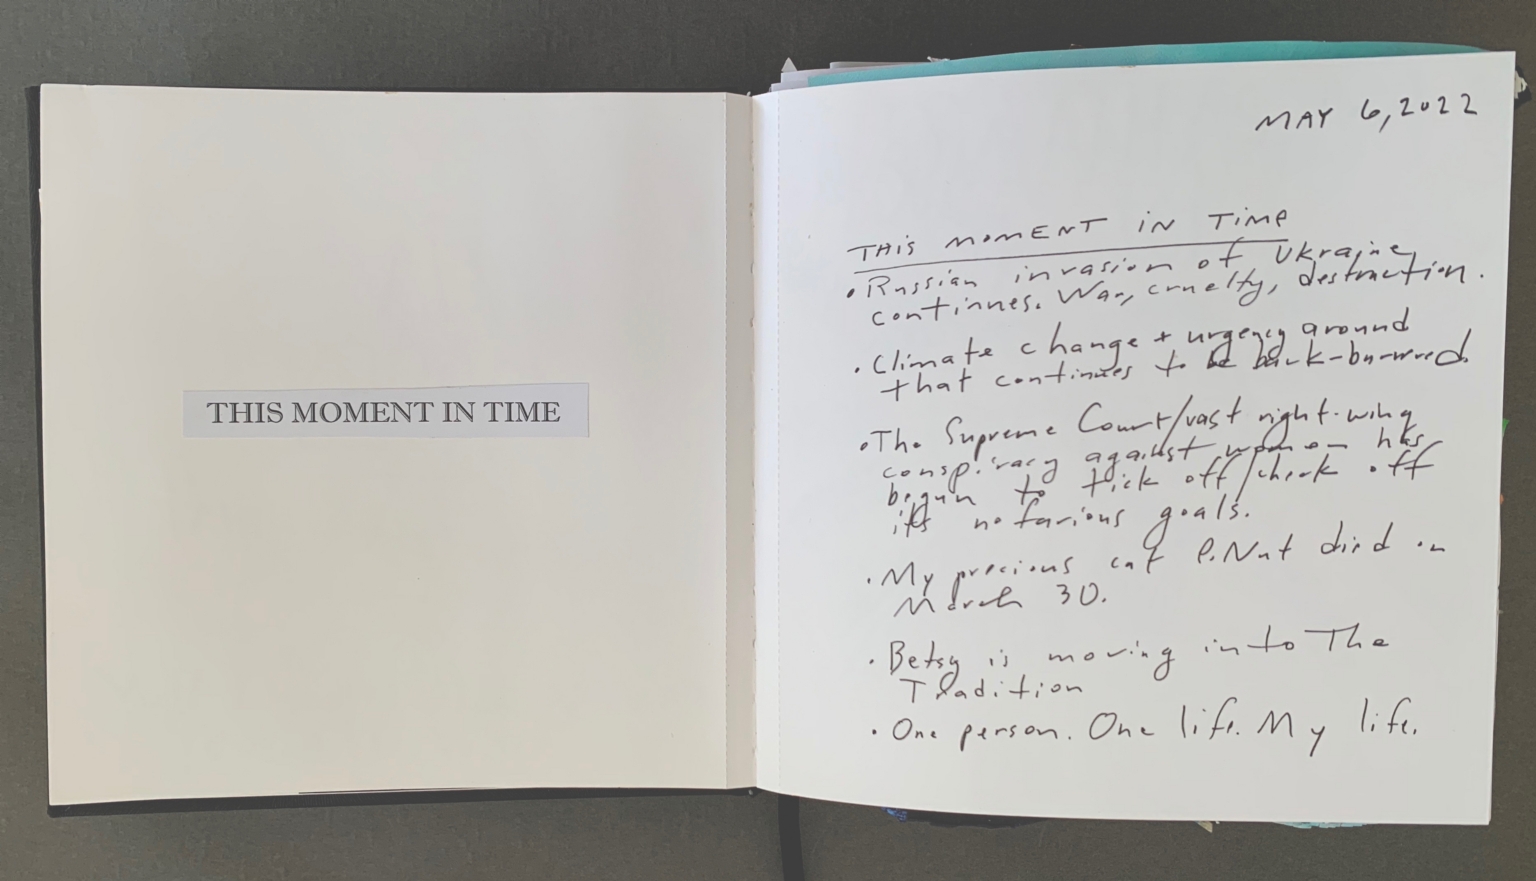 THIS MOMENT IN TIME
MAY 6, 2022
THIS MOMENT IN TIME
• Russian invasion of Ukraine
continues. War, cruelty, destruction.
• Climate change + urgency around
that continues to be back-burnered.
• The Supreme Court/vast right-wing
conspiracy against women has
begun to tick off/check off
its nefarious goals.
• My precious cat P.Nut died on
March 30.
• Betsy is moving into The
Tradition
• One person. One life. My life.